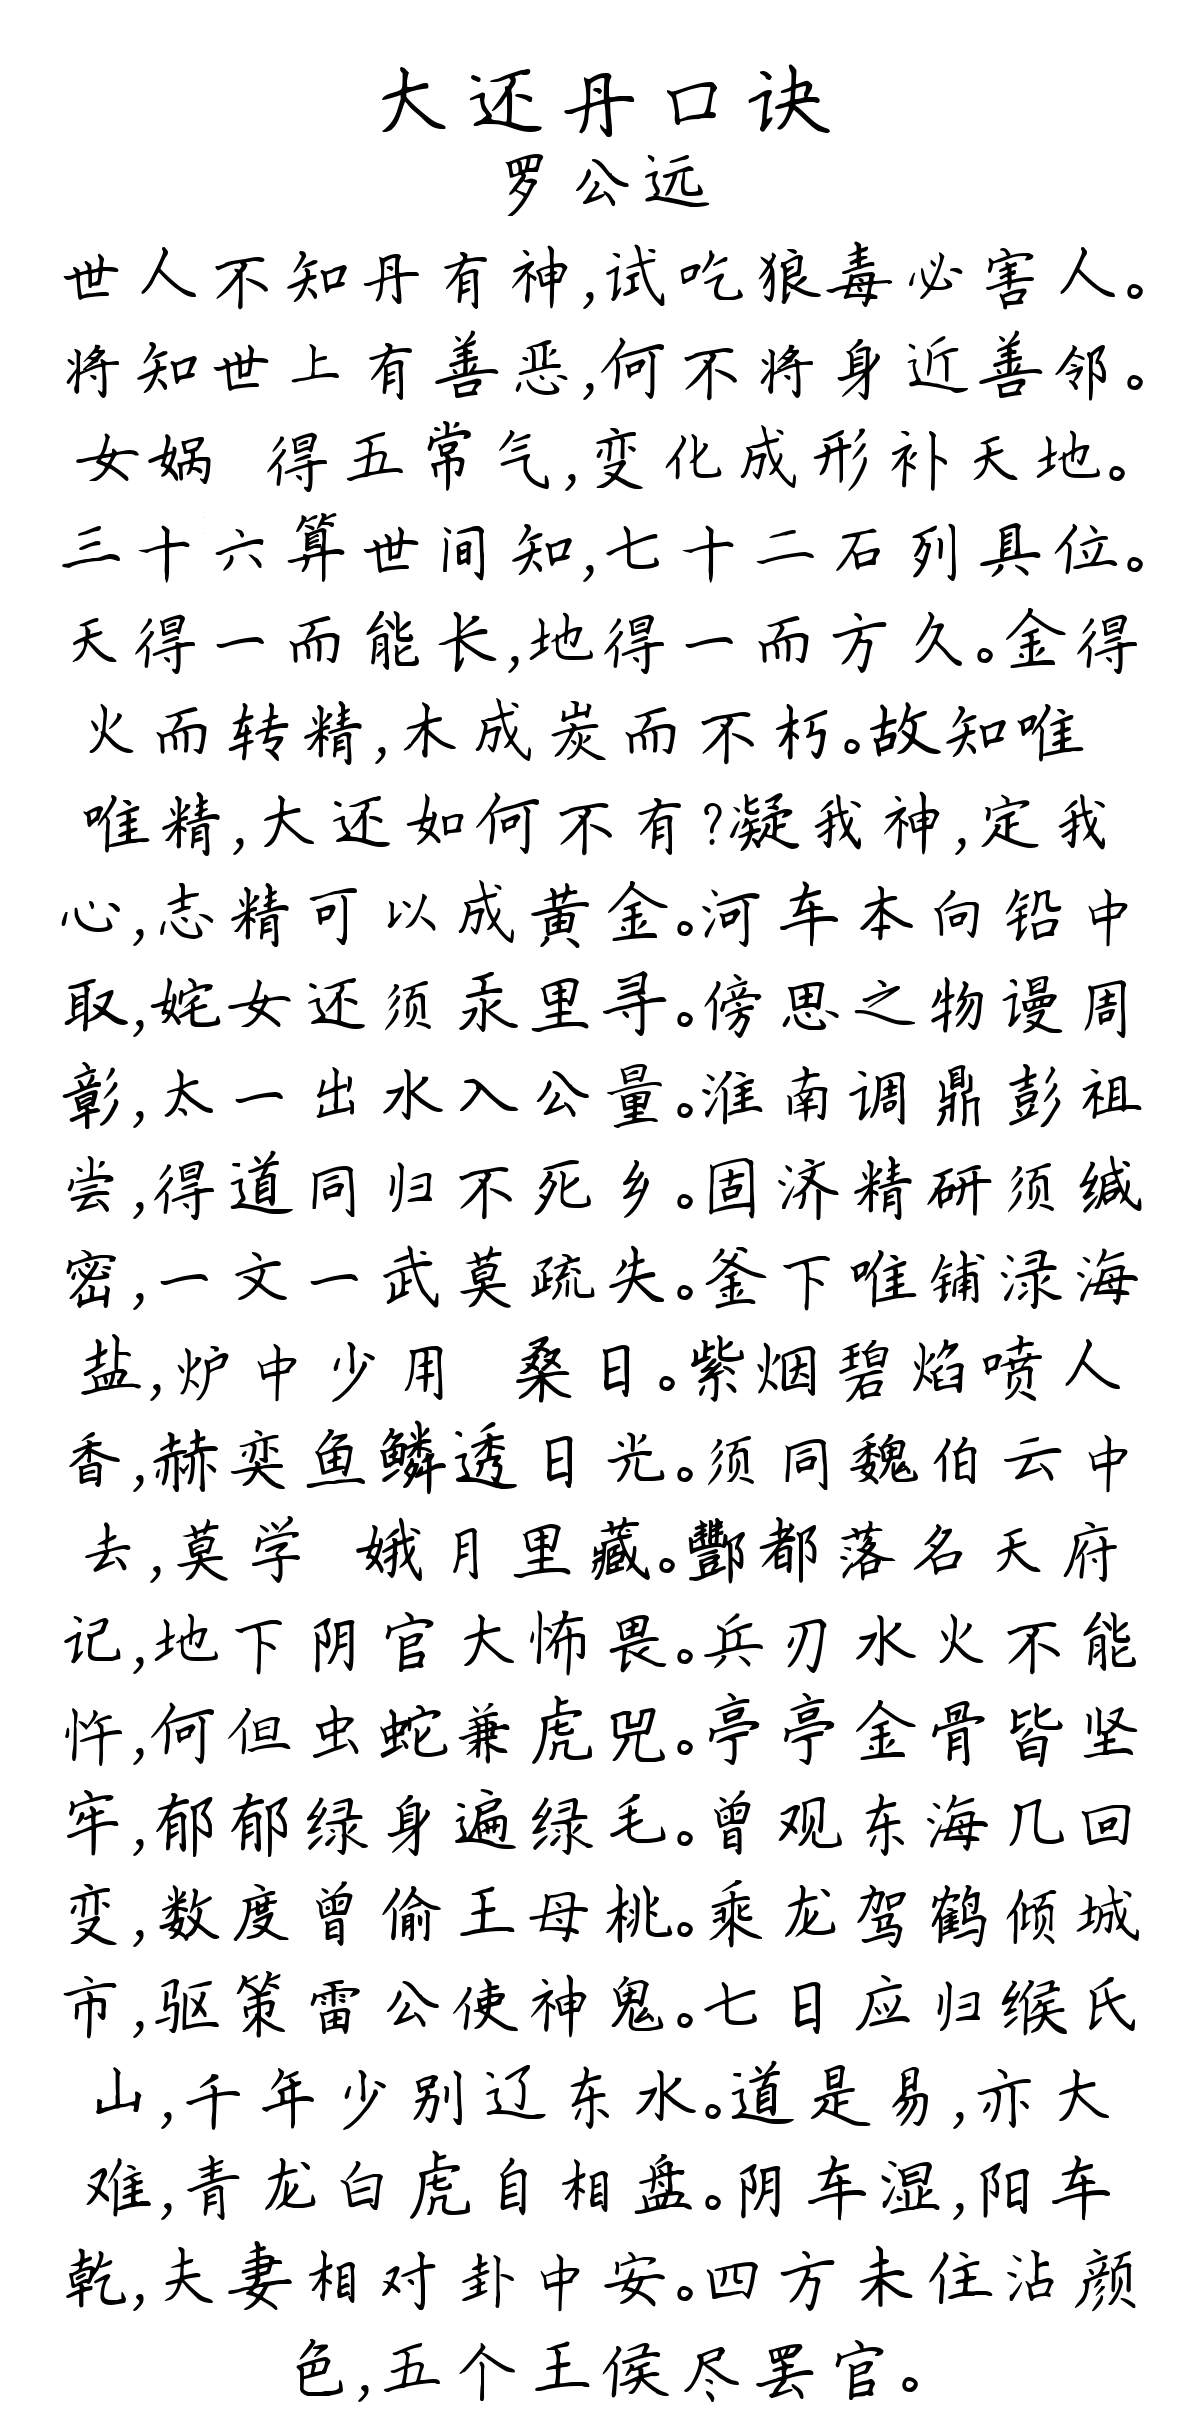 大还丹口诀
罗公远
世人不知丹有神,试吃狼毒必害人。
将知世上有善恶,何不将身近善邻。
女娲 得五常气,变化成形补天地。
三十六算世间知,七十二石列具位。
天得一而能长,地得一而方久。金得
火而转精,木成炭而不朽。故知唯
唯精,大还如何不有?凝我神,定我
心,志精可以成黄金。河车本向铅中
取,姹女还须汞里寻。傍思之物谩周
彰,太一出水入公量。淮南调鼎彭祖
尝,得道同归不死乡。固济精研须缄
密,一文一武莫疏失。釜下唯铺渌海
盐,炉中少用 桑日。紫烟碧焰喷人
香,赫奕鱼鳞透日光。须同魏伯云中
去,莫学 娥月里藏。酆都落名天府
记,地下阴官大怖畏。兵刃水火不能
忤,何但虫蛇兼虎兕。亭亭金骨皆坚
牢,郁郁绿身遍绿毛。曾观东海几回
变,数度曾偷王母桃。乘龙驾鹤倾城
市,驱策雷公使神鬼。七日应归缑氏
山,千年少别辽东水。道是易,亦大
难,青龙白虎自相盘。阴车湿,阳车
乾,夫妻相对卦中安。四方未住沾颜
色,五个王侯尽罢官。